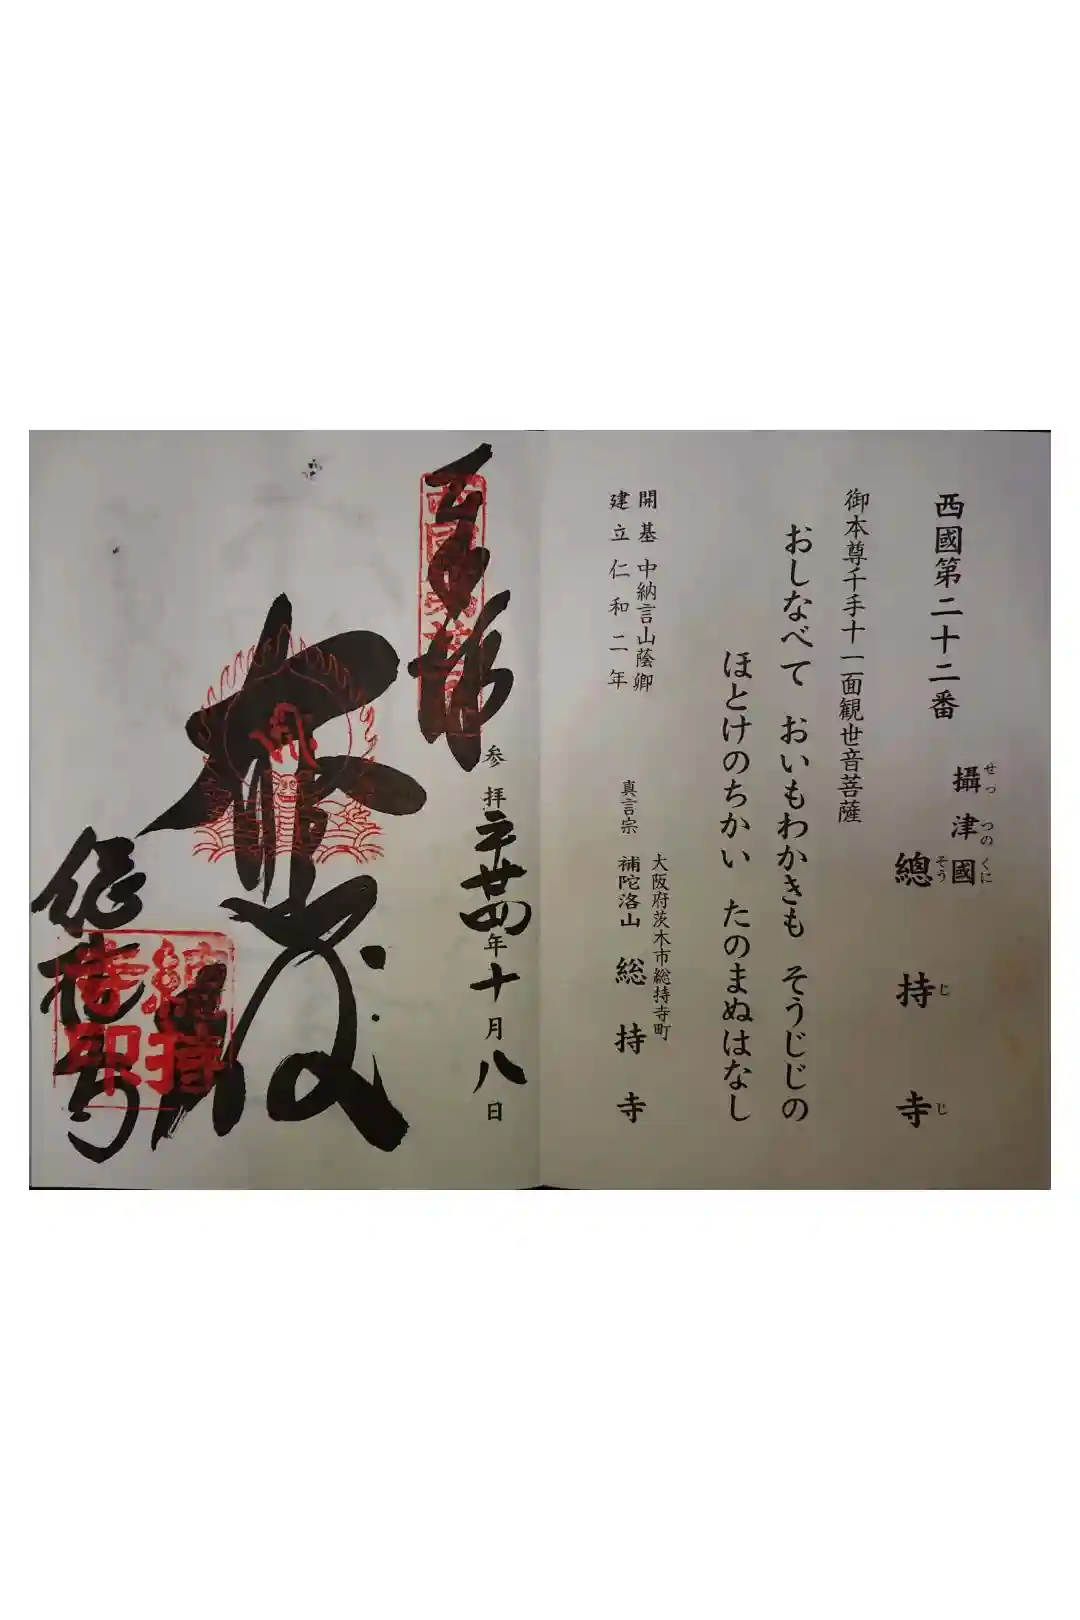 西國第二十二番
攝津國
せっつのくに
總持寺
そうじじ
御本尊千手十一面観世音菩薩
おしなべて おいもわかきも そうじじの
ほとけのちかい たのまぬはなし
開基 中納言山蔭卿
建立 仁和二年
大阪府茨木市総持寺町
真言宗 補陀洛山 総持寺
奉拝
参拝 年十月八日
大悲殿
総持寺
總持寺印